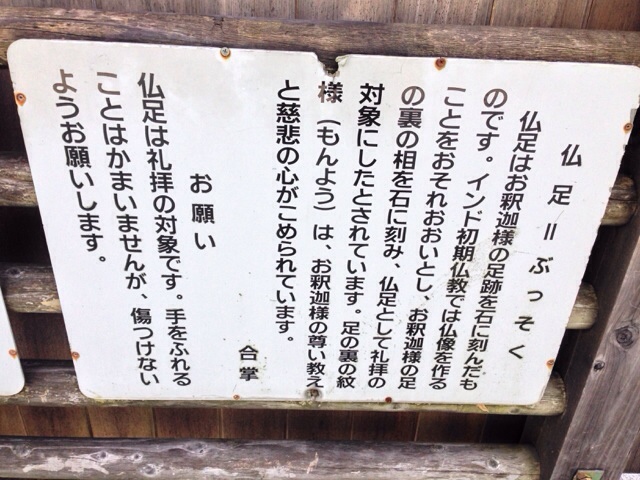 仏足＝ぶっそく
仏足はお釈迦様の足跡を石に刻んだも
のです。インド初期仏教では仏像を作る
ことをおそれおおいとし、お釈迦様の足
の裏の相を石に刻み、仏足として礼拝の
対象にしたとされています。足の裏の紋
様（もんよう）は、お釈迦様の尊い教え
と慈悲の心がこめられています。
合掌
お願い
仏足は礼拝の対象です。手をふれる
ことはかまいませんが、傷つけない
ようお願いします。